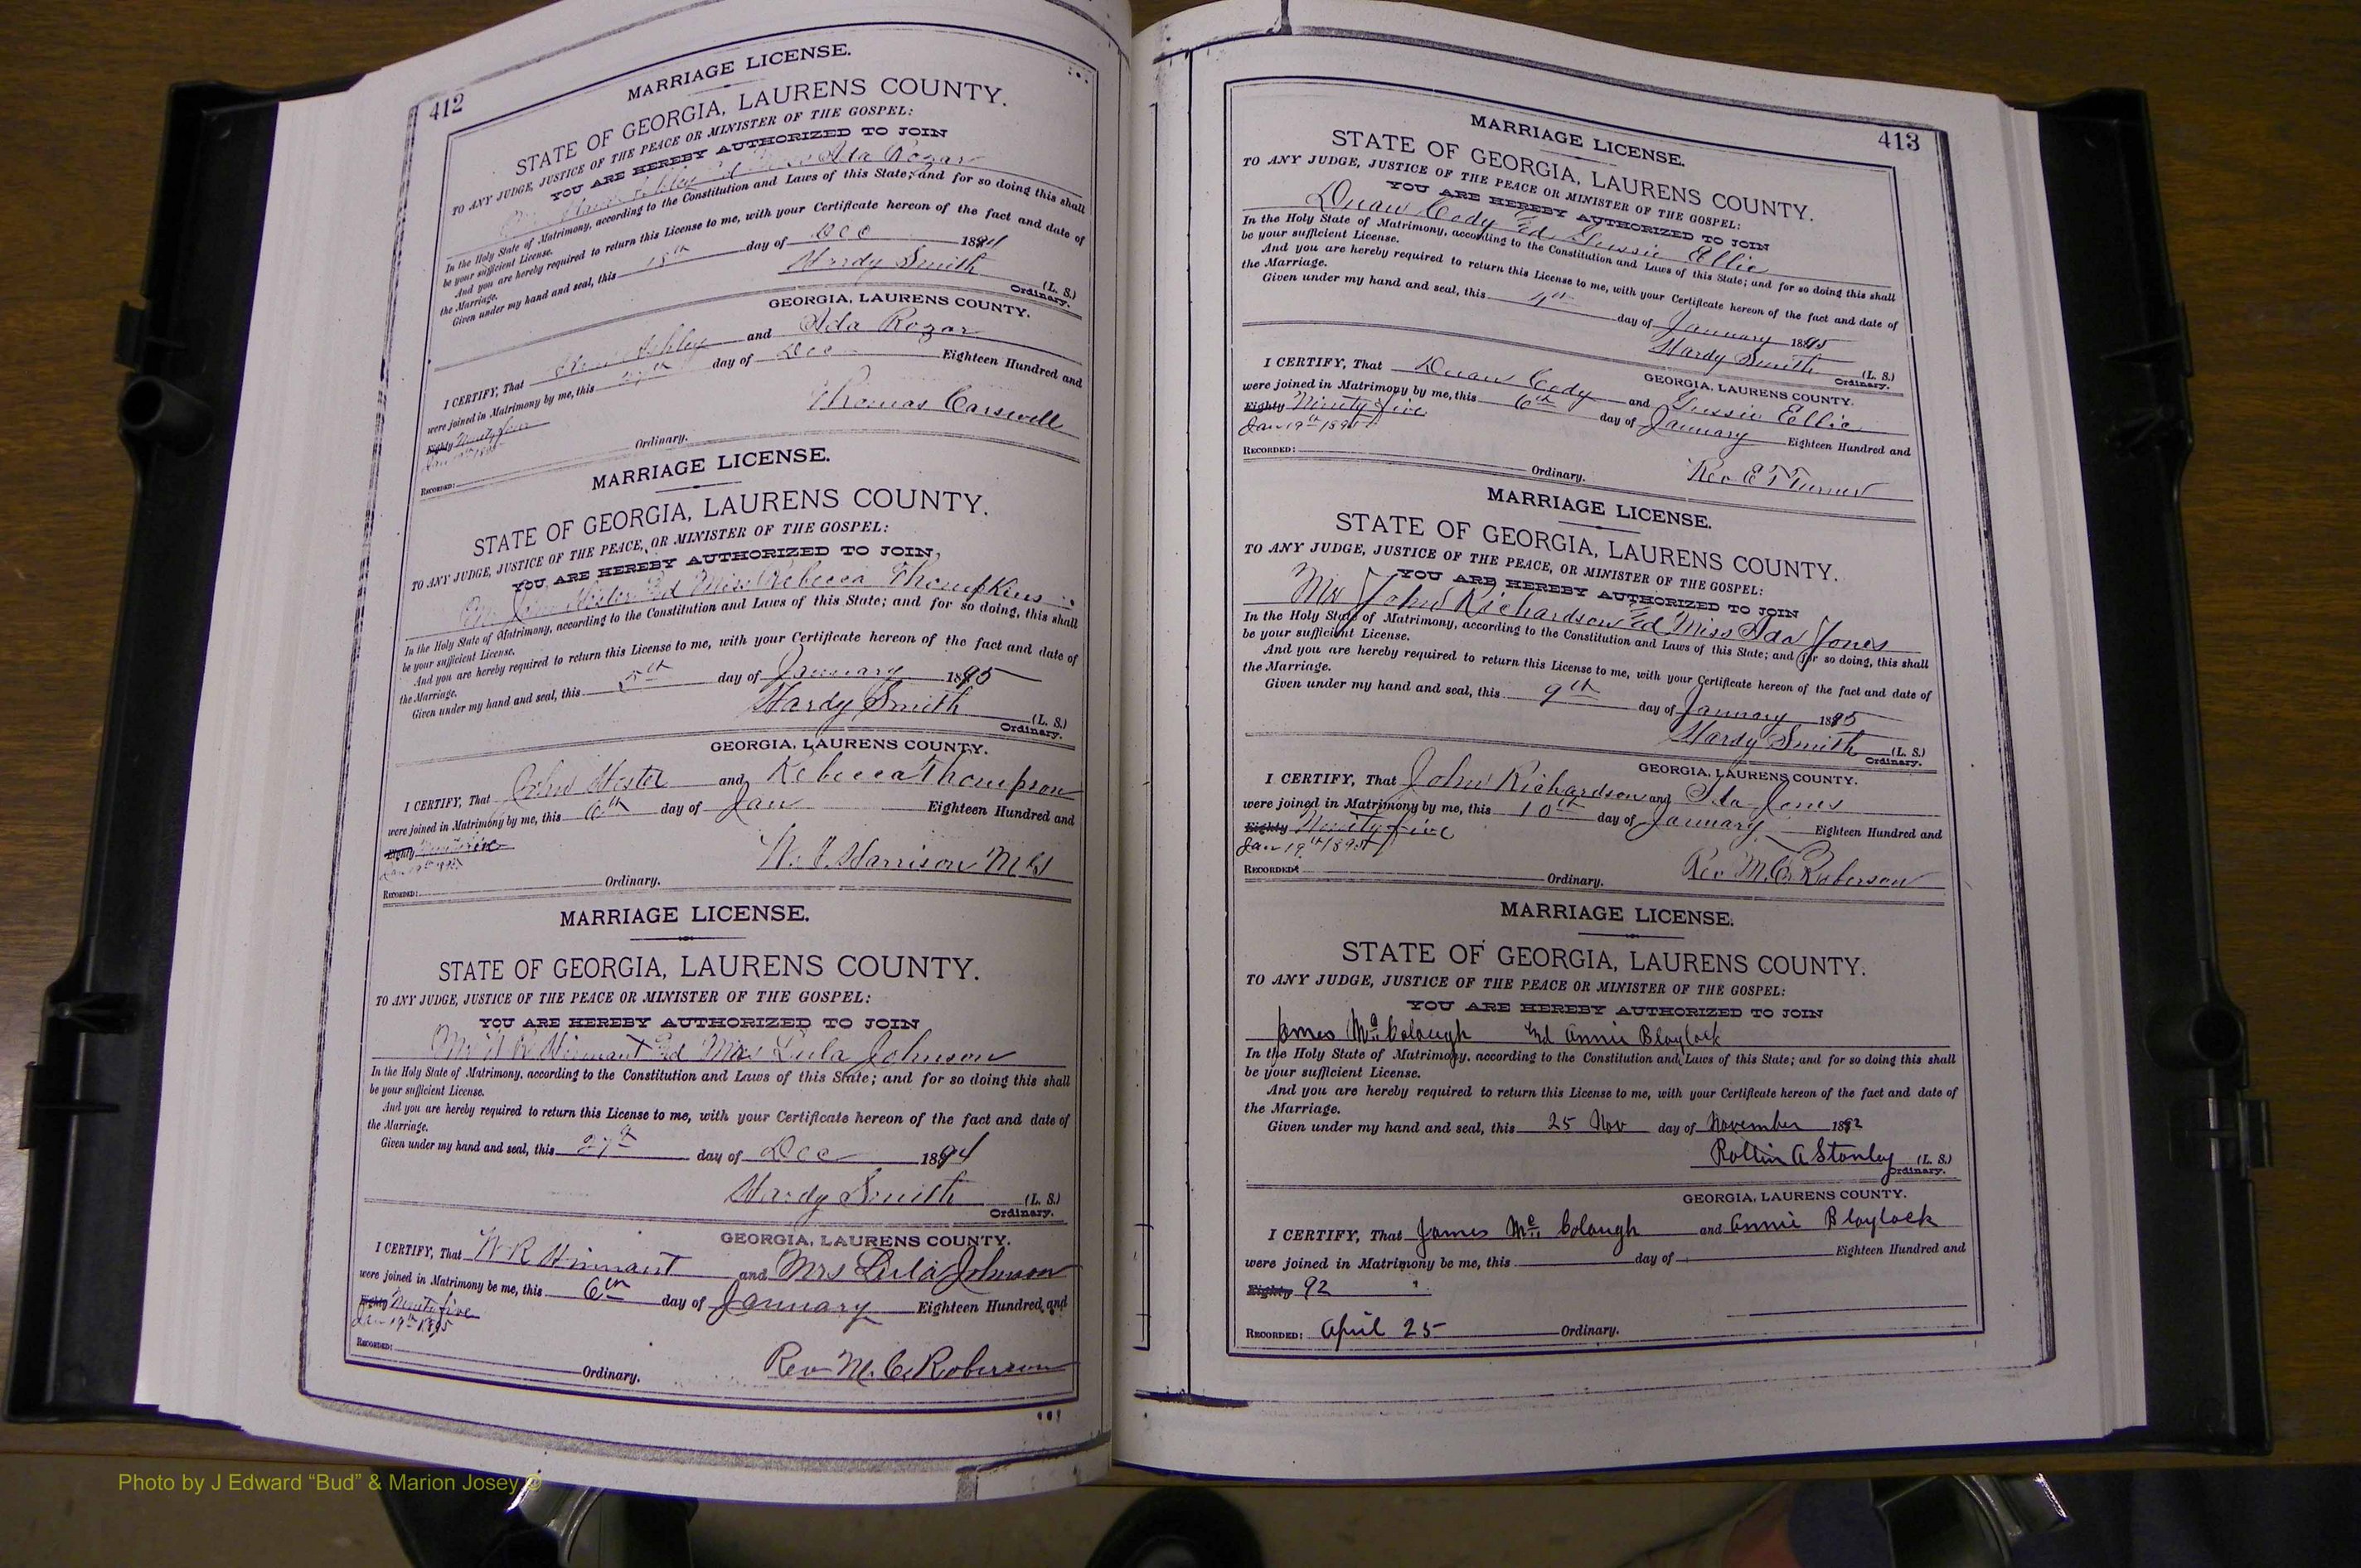 412
MARRIAGE LICENSE.
STATE OF GEORGIA, LAURENS COUNTY.
TO ANY JUDGE, JUSTICE OF THE PEACE OR MINISTER OF THE GOSPEL:
YOU ARE HEREBY AUTHORIZED TO JOIN
Ashley Miss Ida Rozar
In the Holy State of Matrimony, according to the Constitution and Laws of this State; and for so doing this shall
be your sufficient License.
And you are hereby required to return this License to me, with your Certificate hereon of the fact and date of
the Marriage.
Given under my hand and seal, this 18th day of Dec 1894
Hardy Smith (L. S.)
Ordinary.
GEORGIA, LAURENS COUNTY.
I CERTIFY, That Ashley and Ida Rozar
were joined in Matrimony by me, this day of Dec Eighteen Hundred and
Eighty Ninety four
Thomas Carswell
RECORDED: Ordinary.
MARRIAGE LICENSE.
STATE OF GEORGIA, LAURENS COUNTY.
TO ANY JUDGE, JUSTICE OF THE PEACE, OR MINISTER OF THE GOSPEL:
YOU ARE HEREBY AUTHORIZED TO JOIN,
Mr John Hester & Miss Rebecca Thompkins
In the Holy State of Matrimony, according to the Constitution and Laws of this State; and for so doing, this shall
be your sufficient License.
And you are hereby required to return this License to me, with your Certificate hereon of the fact and date of
the Marriage.
Given under my hand and seal, this 5th day of January 1895
Hardy Smith (L. S.)
Ordinary.
GEORGIA, LAURENS COUNTY.
I CERTIFY, That John Hester and Rebecca Thompson
were joined in Matrimony by me, this 6th day of Jan Eighteen Hundred and
Eighty Ninety five
Jan 19th 1895
Harrison
RECORDED: Ordinary.
MARRIAGE LICENSE.
STATE OF GEORGIA, LAURENS COUNTY.
TO ANY JUDGE, JUSTICE OF THE PEACE OR MINISTER OF THE GOSPEL:
YOU ARE HEREBY AUTHORIZED TO JOIN
Mr W R Hinnant & Mrs Lula Johnson
In the Holy State of Matrimony, according to the Constitution and Laws of this State; and for so doing this shall
be your sufficient License.
And you are hereby required to return this License to me, with your Certificate hereon of the fact and date of
the Marriage.
Given under my hand and seal, this 27th day of Dec 1894
Hardy Smith (L. S.)
Ordinary.
GEORGIA, LAURENS COUNTY.
I CERTIFY, That W R Hinnant and Mrs Lula Johnson
were joined in Matrimony be me, this 6th day of January Eighteen Hundred and
Eighty Ninety five
Jan 19th 1895
RECORDED: Ordinary.
Rev M. C. Roberson
413
MARRIAGE LICENSE.
STATE OF GEORGIA, LAURENS COUNTY.
TO ANY JUDGE, JUSTICE OF THE PEACE OR MINISTER OF THE GOSPEL:
YOU ARE HEREBY AUTHORIZED TO JOIN
Cody & Gussie Ellie
In the Holy State of Matrimony, according to the Constitution and Laws of this State; and for so doing this shall
be your sufficient License.
And you are hereby required to return this License to me, with your Certificate hereon of the fact and date of
the Marriage.
Given under my hand and seal, this 4th day of January 1895
Hardy Smith (L. S.)
Ordinary.
GEORGIA, LAURENS COUNTY.
I CERTIFY, That Cody and Gussie Ellie
were joined in Matrimony by me, this 6th day of January Eighteen Hundred and
Eighty Ninety five
Jan 19th 1895
Rev E T Turner
RECORDED: Ordinary.
MARRIAGE LICENSE.
STATE OF GEORGIA, LAURENS COUNTY.
TO ANY JUDGE, JUSTICE OF THE PEACE, OR MINISTER OF THE GOSPEL:
YOU ARE HEREBY AUTHORIZED TO JOIN
Mr John Richardson & Miss Ida Jones
In the Holy State of Matrimony, according to the Constitution and Laws of this State; and for so doing, this shall
be your sufficient License.
And you are hereby required to return this License to me, with your Certificate hereon of the fact and date of
the Marriage.
Given under my hand and seal, this 9th day of January 1895
Hardy Smith (L. S.)
Ordinary.
GEORGIA, LAURENS COUNTY.
I CERTIFY, That John Richardson and Ida Jones
were joined in Matrimony by me, this 10th day of January Eighteen Hundred and
Eighty Ninety five
Jan 19th 1895
Rev M. C. Roberson
RECORDED: Ordinary.
MARRIAGE LICENSE.
STATE OF GEORGIA, LAURENS COUNTY.
TO ANY JUDGE, JUSTICE OF THE PEACE OR MINISTER OF THE GOSPEL:
YOU ARE HEREBY AUTHORIZED TO JOIN
James Mc Colough & Annie Blaylock
In the Holy State of Matrimony, according to the Constitution and Laws of this State; and for so doing this shall
be your sufficient License.
And you are hereby required to return this License to me, with your Certificate hereon of the fact and date of
the Marriage.
Given under my hand and seal, this 25 Nov day of November 1892
Rollin A Stanley (L. S.)
Ordinary.
GEORGIA, LAURENS COUNTY.
I CERTIFY, That James Mc Colough and Annie Blaylock
were joined in Matrimony be me, this day of Eighteen Hundred and
Eighty 92
RECORDED: April 25 Ordinary.
Photo by J Edward “Bud” & Marion Josey ©